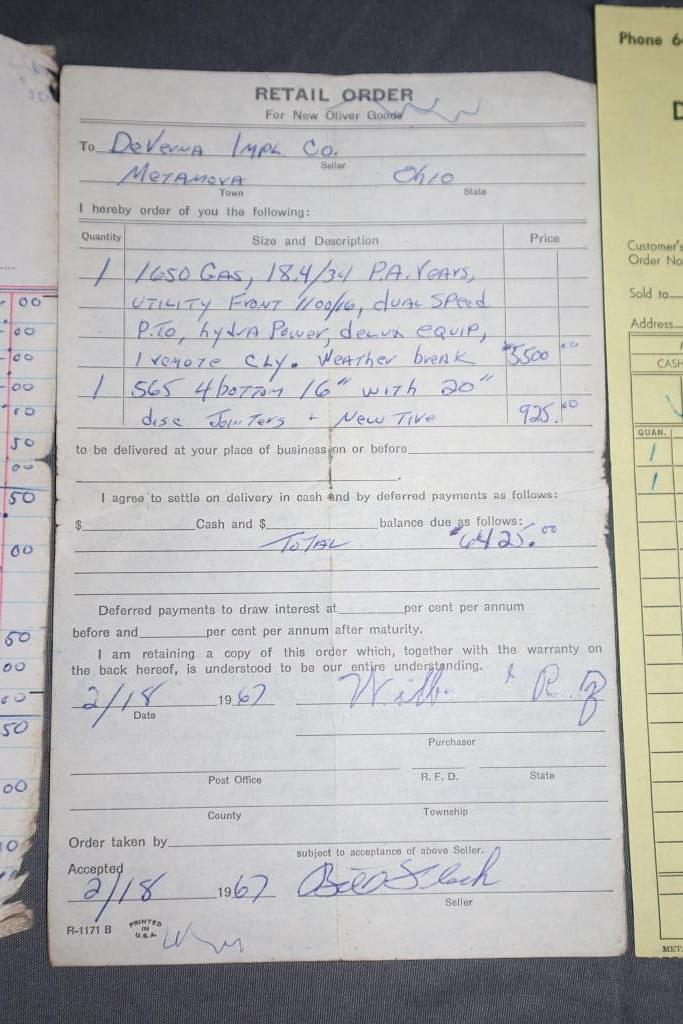 RETAIL ORDER
For New Oliver Goods
To DeVerna Impl. Co.
Seller
Metamora Ohio
Town State
I hereby order of you the following:
Quantity Size and Description Price
1 1650 Gas, 18.4/34 P.A. Years,
Utility Front 1100/16, dual speed
P.T.O, hydra Power, delux equip,
1 remote cly. Weather break $5500.00
1 565 4 bottom 16" with 20"
disc Jointers + New Tire 925.00
to be delivered at your place of business on or before
I agree to settle on delivery in cash and by deferred payments as follows:
$ Cash and $ balance due as follows:
Total $6425.00
Deferred payments to draw interest at per cent per annum
before and per cent per annum after maturity.
I am retaining a copy of this order which, together with the warranty on
the back hereof, is understood to be our entire understanding.
2/18 1967
Date
Purchaser
Post Office R. F. D. State
County Township
Order taken by
subject to acceptance of above Seller.
Accepted
2/18 1967
Seller
R-1171 B PRINTED IN U.S.A.
00
00
00
00
50
00
50
00
50
00
50
00
Phone 6
D
Customer's
Order No
Sold to
Address
CASH
QUAN.
1
1
MET